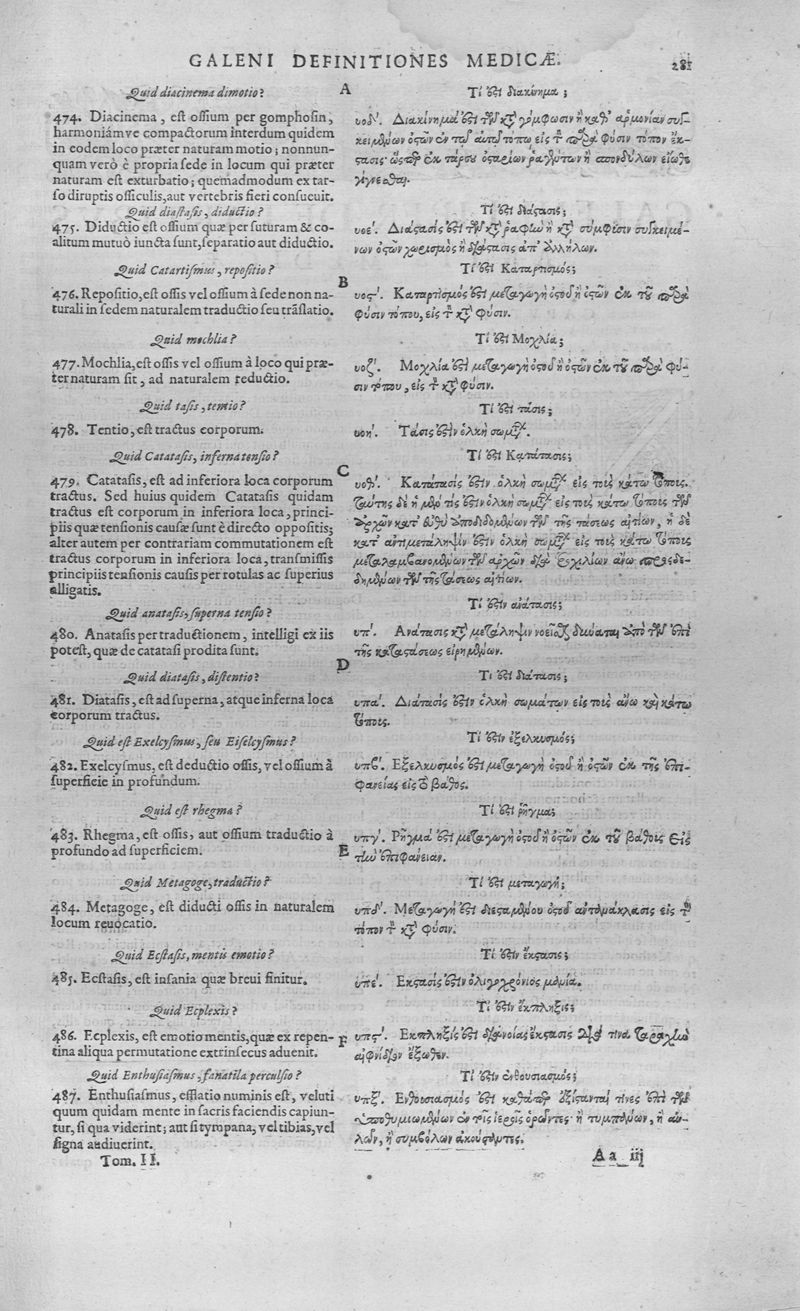 GALENI DEFINITIONES MEDICÆ.
281
Quid diacinema dimotio?
474. Diacinema, est ossium per gomphosin,
harmoniámve compactorum interdum quidem
in eodem loco præter naturam motio; nonnun-
quam verò è propria sede in locum qui præter
naturam est exturbatio; quemadmodum ex tar-
so diruptis officulis, aut vertebris fieri consueuit.
Quid diastasis, diductio?
475. Diductio est ossium quæ per suturam & co-
alitum mutuò iuncta sunt, separatio aut diductio.
Quid Catartismus, repositio?
476. Repositio, est ossis vel ossium à sede non na-
turali in sedem naturalem traductio seu trãslatio.
Quid mochlia?
477. Mochlia, est ossis vel ossium à loco qui præ-
ter naturam sit, ad naturalem reductio.
Quid tasis, tentio?
478. Tentio, est tractus corporum.
Quid Catatasis, inferna tensio?
479. Catatasis, est ad inferiora loca corporum
tractus. Sed huius quidem Catatasis quidam
tractus est corporum in inferiora loca, princi-
piis quæ tensionis causæ sunt è directo oppositis;
alter autem per contrariam commutationem est
tractus corporum in inferiora loca, transmissis
principiis tensionis causis per rotulas ac superius
alligatis.
Quid anatasis, superna tensio?
480. Anatasis per traductionem, intelligi ex iis
potest, quæ de catatasi prodita sunt.
Quid diatasis, distentio?
481. Diatasis, est ad superna, atque inferna loca
corporum tractus.
Quid est Exelcysmus, seu Eiselcysmus?
482. Exelcysmus, est deductio ossis, vel ossium à
superficie in profundum.
Quid est rhegma?
483. Rhegma, est ossis, aut ossium traductio à
profundo ad superficiem.
Quid Metagoge, traductio?
484. Metagoge, est diducti ossis in naturalem
locum reuocatio.
Quid Ecstasis, mentis emotio?
485. Ecstasis, est insania quæ breui finitur.
Quid Ecplexis?
486. Ecplexis, est emotio mentis, quæ ex repen-
tina aliqua permutatione extrinsecus aduenit.
Quid Enthusiasmus, fanatila perculsio?
487. Enthusiasmus, efflatio numinis est, veluti
quum quidam mente in sacris faciendis capiun-
tur, si qua viderint; aut si tympana, vel tibias, vel
signa audiuerint.
Tom. II.
A
B
C
D
E
F
Τί ἐστι διακίνημα;
υοδʹ. Διακίνημά ἐστι τῶν κατὰ γόμφωσιν ἢ καθ' ἁρμονίαν συγ-
κειμένων ὀστῶν ἐν τῷ αὐτῷ τόπῳ εἰς τὸν παρὰ φύσιν τόπον ἔκ-
στασις· ὥσπερ ἐκ ταρσοῦ ὀσταρίων ῥαγέντων ἢ σπονδύλων εἴωθε
γίγνεσθαι.
Τί ἐστι διάστασις;
υοεʹ. Διάστασίς ἐστι τῶν κατὰ ῥαφὴν ἢ κατὰ σύμφυσιν συγκειμέ-
νων ὀστῶν χωρισμὸς ἢ διάστασις ἀπ' ἀλλήλων.
Τί ἐστι Καταρτισμός;
υοςʹ. Καταρτισμός ἐστι μεταγωγὴ ὀστοῦ ἢ ὀστῶν ἐκ τοῦ παρὰ
φύσιν τόπου, εἰς τὸν κατὰ φύσιν.
Τί ἐστι Μοχλία;
υοζʹ. Μοχλία ἐστὶ μεταγωγὴ ὀστοῦ ἢ ὀστῶν ἐκ τοῦ παρὰ φύ-
σιν τόπου, εἰς τὸν κατὰ φύσιν.
Τί ἐστι τάσις;
υοηʹ. Τάσις ἐστὶν ὁλκὴ σωμάτων.
Τί ἐστι Κατάτασις;
υοθʹ. Κατάτασίς ἐστιν ὁλκὴ σωμάτων εἰς τοὺς κάτω τόπους.
ταύτης δὲ ἡ μέν τίς ἐστιν ὁλκὴ σωμάτων εἰς τοὺς κάτω τόπους τῶν
ἀρχῶν κατ' εὐθὺ ἀποδιδομένων τῶν τῆς τάσεως αἰτίων, ἡ δὲ
κατ' ἀντιμετάληψιν ἐστὶν ὁλκὴ σωμάτων εἰς τοὺς κάτω τόπους
μεταλαμβανομένων τῶν ἀρχῶν διὰ τροχιλίων ἄνω προσδε-
δημένων τῶν τῆς τάσεως αἰτίων.
Τί ἐστιν ἀνάτασις;
υπʹ. Ανάτασις κατὰ μετάληψιν νοεῖσθαι δύναται ἀπὸ τῶν ἐπὶ
τῆς κατατάσεως εἰρημένων.
Τί ἐστι διάτασις;
υπαʹ. Διάτασίς ἐστιν ὁλκὴ σωμάτων εἰς τοὺς ἄνω καὶ κάτω
τόπους.
Τί ἐστιν ἐξελκυσμός;
υπβʹ. Εξελκυσμός ἐστι μεταγωγὴ ὀστοῦ ἢ ὀστῶν ἐκ τῆς ἐπι-
φανείας εἰς τὸ βάθος.
Τί ἐστι ῥῆγμα;
υπγʹ. Ρῆγμά ἐστι μεταγωγὴ ὀστοῦ ἢ ὀστῶν ἐκ τοῦ βάθους εἰς
τὴν ἐπιφάνειαν.
Τί ἐστι μεταγωγή;
υπδʹ. Μεταγωγή ἐστι διεσταμένου ὀστοῦ ἀντανάκλασις εἰς τὸν
τόπον τὸν κατὰ φύσιν.
Τί ἐστιν ἔκστασις;
υπεʹ. Εκστασίς ἐστιν ὀλιγοχρόνιος μανία.
Τί ἐστιν ἔκπληξις;
υπςʹ. Εκπληξίς ἐστι διανοίας ἔκστασις διά τινα ταραχὴν
αἰφνίδιον ἔξωθεν.
Τί ἐστιν ἐνθουσιασμός;
υπζʹ. Ενθουσιασμός ἐστι καθάπερ ἐξίστανταί τινες ἐπὶ τῶν
ὑποθυμιωμένων ἐν τοῖς ἱεροῖς ὁρῶντες ἢ τυμπάνων, ἢ αὐ-
λῶν, ἢ συμβόλων ἀκούσαντες.
Aa iij